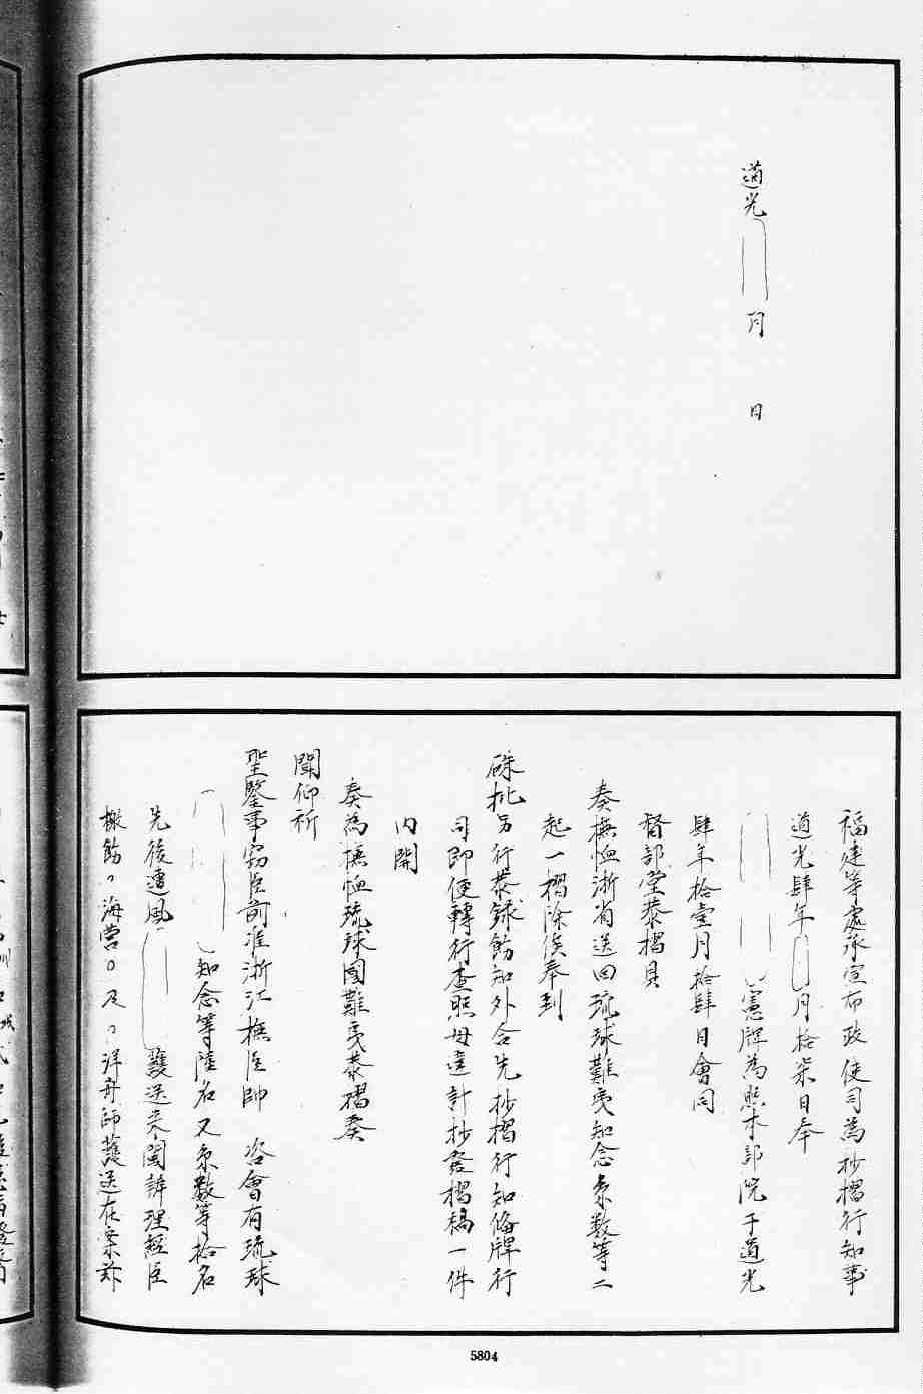 道光　月　日
福建等處承宣布政使司為抄摺行知事
道光肆年　月拾柒日奉
憲牌為照本部院于道光
肆年拾壹月拾肆日會同
督部堂恭摺具
奏撫恤浙省送回琉球難夷知念糸数等二
起一摺除俟奉到
硃批另行恭錄飭知外合先抄摺行知備牌行
司即便轉行查照毋違計抄奏摺稿一件
內開
奏為撫恤琉球國難夷恭摺奏
聞仰祈
聖鑒事竊臣前准浙江撫臣帥　咨會有琉球
知念等陸名又糸數等拾名
先後遭風　護送来閩辦理經臣
檄飭　海營　及　洋舟師護送在案茲
5804